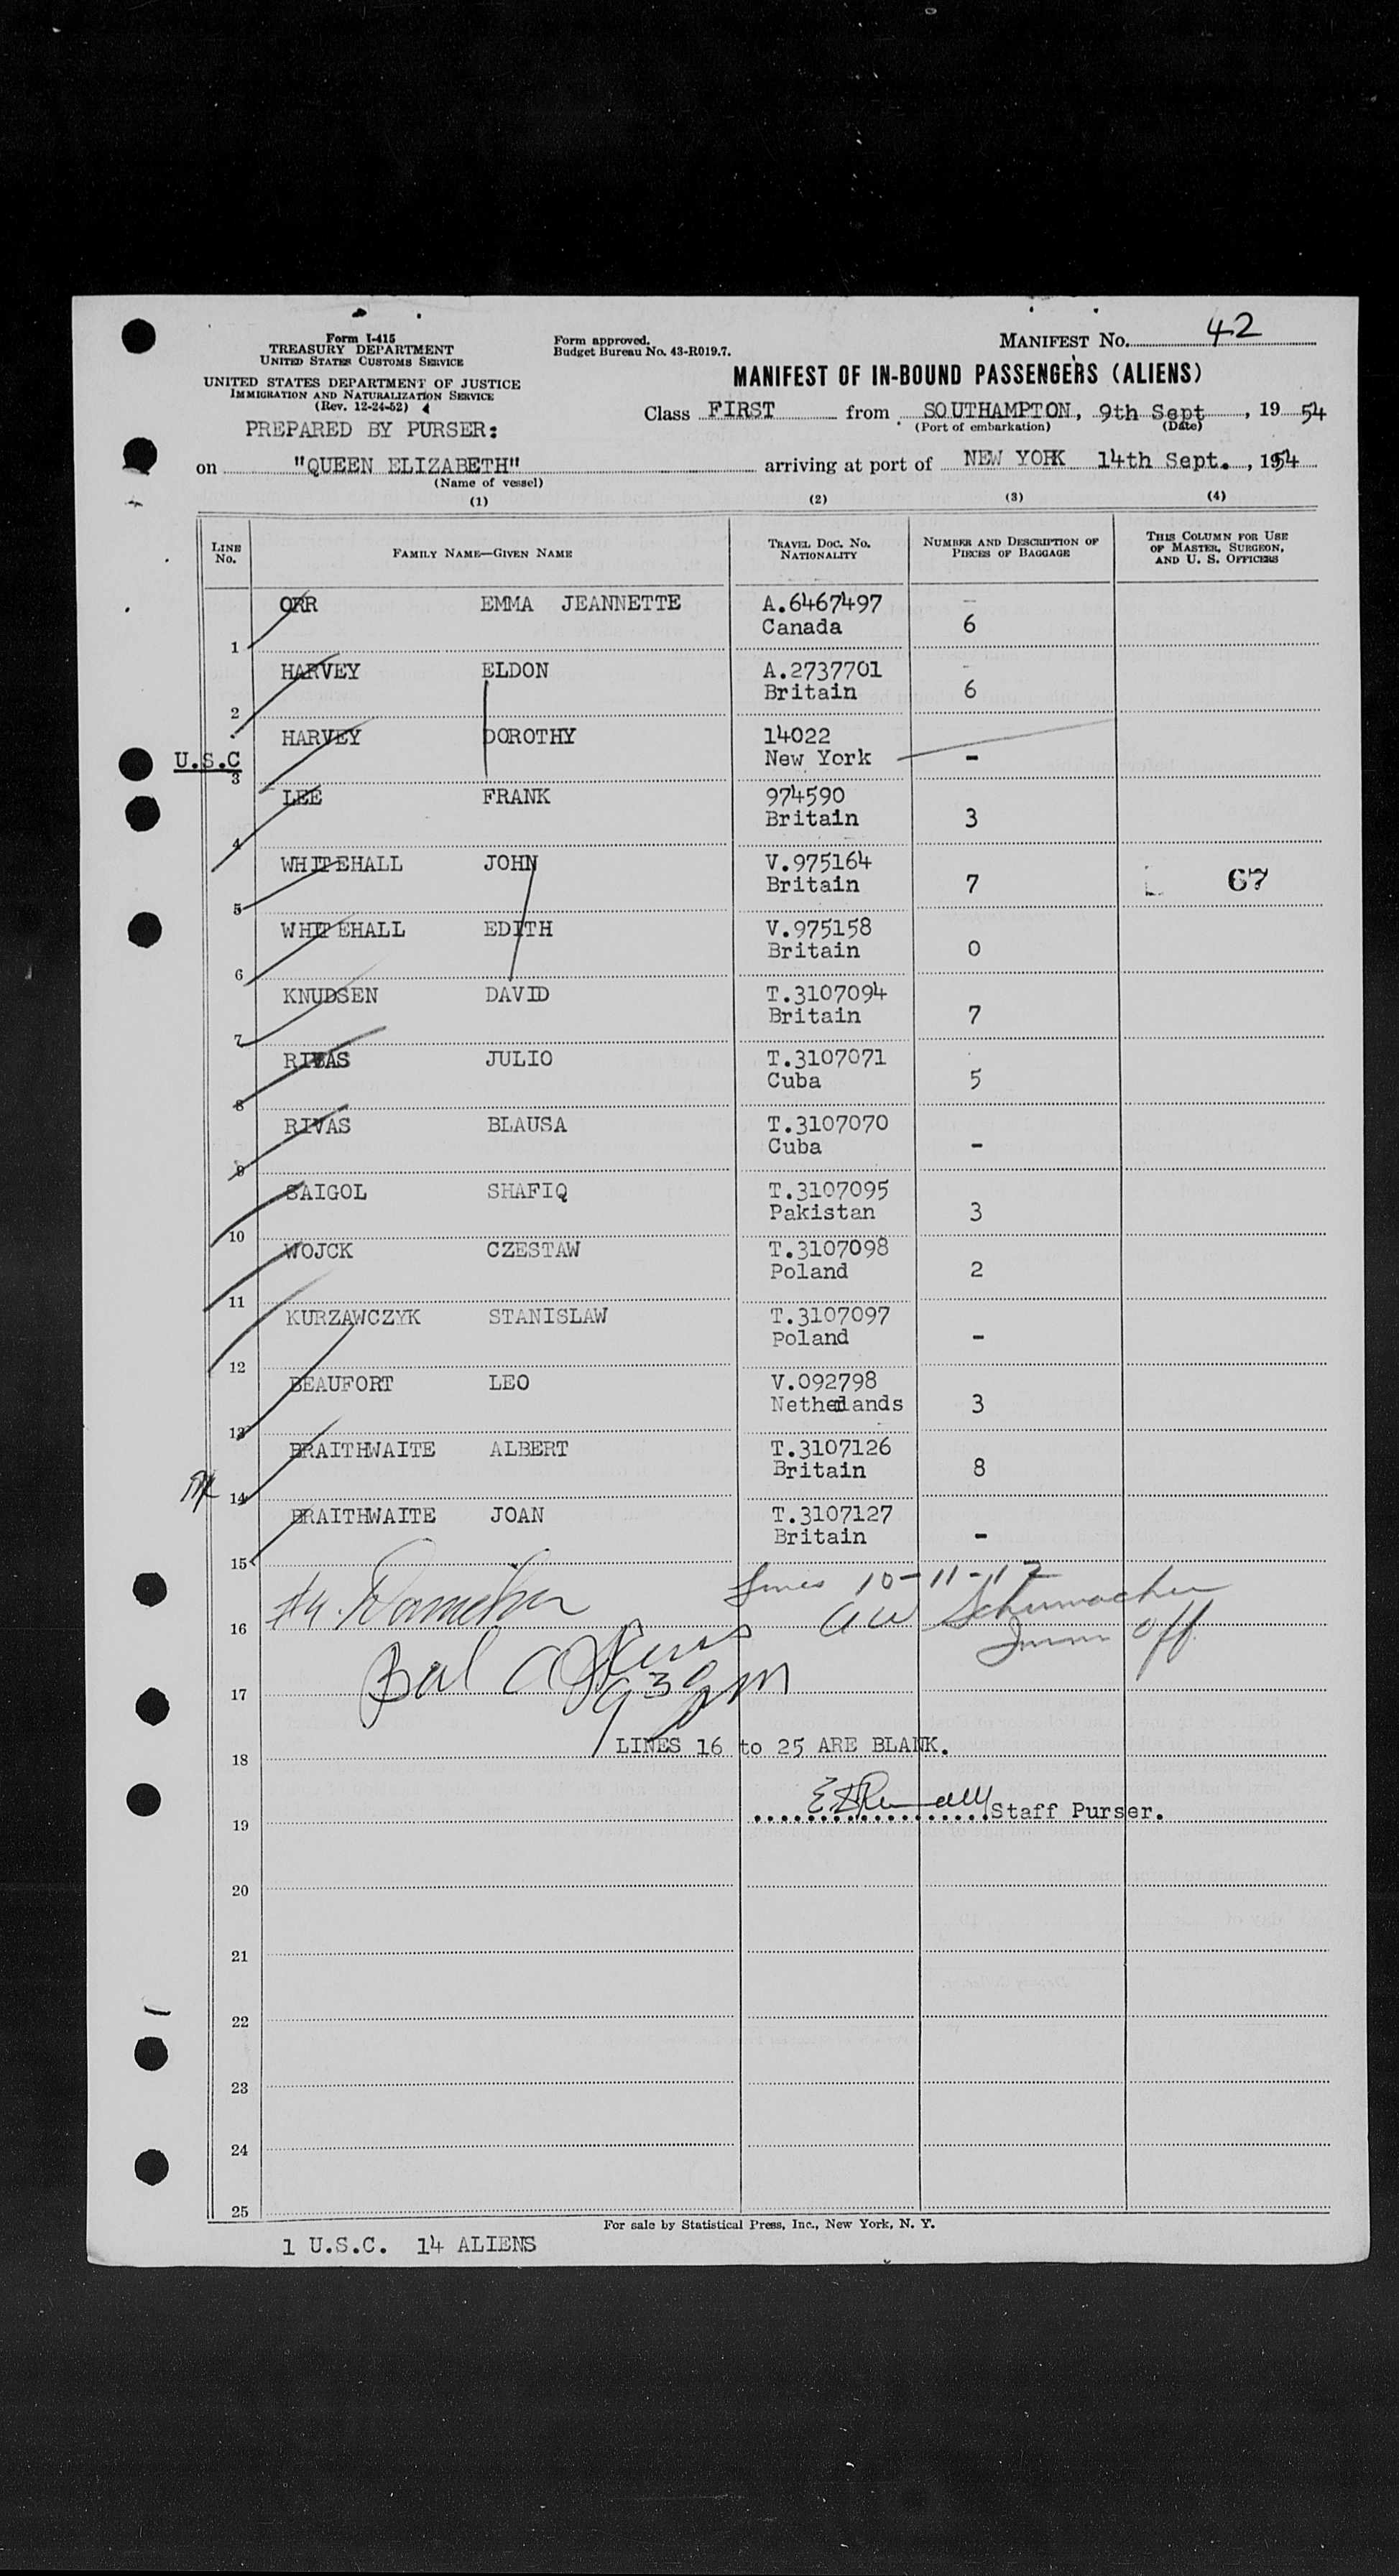 Form I-415
TREASURY DEPARTMENT
UNITED STATES CUSTOMS SERVICE
UNITED STATES DEPARTMENT OF JUSTICE
IMMIGRATION AND NATURALIZATION SERVICE
(Rev. 12-24-52)
PREPARED BY PURSER:
Form approved.
Budget Bureau No. 43-R019.7.
MANIFEST No. 42
MANIFEST OF IN-BOUND PASSENGERS (ALIENS)
Class FIRST from SOUTHAMPTON, 9th Sept, 1954
(Port of embarkation) (Date)
on "QUEEN ELIZABETH" arriving at port of NEW YORK 14th Sept., 1954
(Name of vessel)
(1) (2) (3) (4)
LINE No. FAMILY NAME—GIVEN NAME TRAVEL DOC. NO. NATIONALITY NUMBER AND DESCRIPTION OF PIECES OF BAGGAGE THIS COLUMN FOR USE OF MASTER, SURGEON, AND U. S. OFFICERS
ORR EMMA JEANNETTE A.6467497 -
1 Canada 6
HARVEY ELDON A.2737701 -
2 Britain 6
HARVEY DOROTHY 14022
U.S.C 3 New York -
LEE FRANK 974590
4 Britain 3
WHITEHALL JOHN V.975164
5 Britain 7 67
WHITEHALL EDITH V.975158
6 Britain 0
KNUDSEN DAVID T.3107094
7 Britain 7
RIVAS JULIO T.3107071
8 Cuba 5
RIVAS BLAUSA T.3107070
9 Cuba -
SAIGOL SHAFIQ T.3107095
10 Pakistan 3
WOJCK CZESTAW T.3107098
11 Poland 2
KURZAWCZYK STANISLAW T.3107097
12 Poland -
BEAUFORT LEO V.092798
13 Netherlands 3
BRAITHWAITE ALBERT T.3107126
14 Britain 8
BRAITHWAITE JOAN T.3107127
15 Britain -
Lines 10-11-12
16 AW Schumacher
Imm Off.
17 Bal
18 LINES 16 to 25 ARE BLANK.
19 Staff Purser.
20
21
22
23
24
25
For sale by Statistical Press, Inc., New York, N. Y.
1 U.S.C. 14 ALIENS